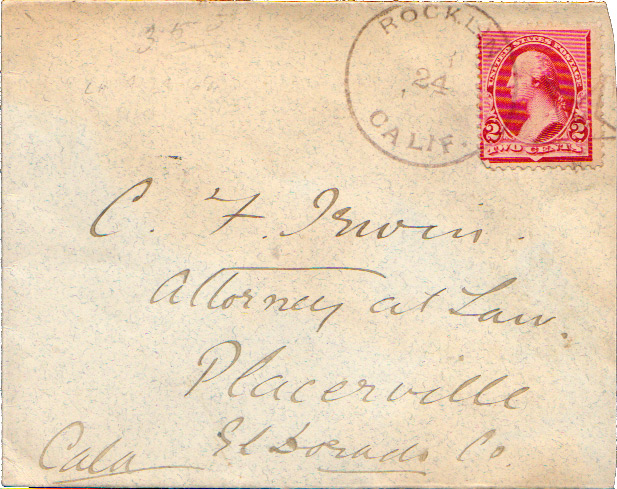 355
ROCKLIN
24
CALIF.
UNITED STATES POSTAGE
2 2
TWO CENTS
C. F. Irwin.
Attorney at Law.
Placerville
El Dorado Co.
Cala